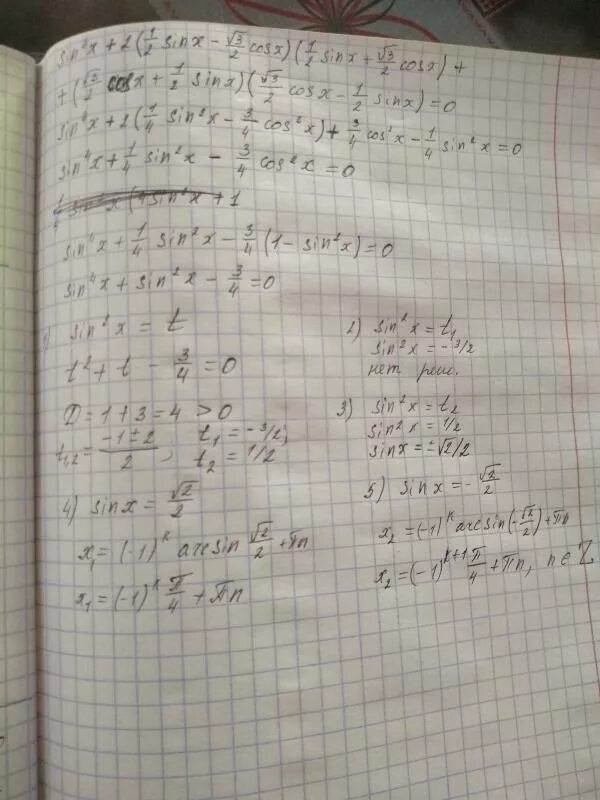 sin⁴x + 2(1/2 sinx - √3/2 cosx)(1/2 sinx + √3/2 cosx) +
+ (√3/2 cosx + 1/2 sinx)(√3/2 cosx - 1/2 sinx) = 0
sin⁴x + 2(1/4 sin²x - 3/4 cos²x) + 3/4 cos²x - 1/4 sin²x = 0
sin⁴x + 1/4 sin²x - 3/4 cos²x = 0
sin⁴x + 1/4 sin²x - 3/4 (1 - sin²x) = 0
sin⁴x + sin²x - 3/4 = 0
1) sin²x = t
t² + t - 3/4 = 0
D = 1 + 3 = 4 > 0
t₁,₂ = (-1 ± 2)/2, t₁ = -3/2;
t₂ = 1/2
2) sin²x = t₁
sin²x = -3/2
нет реш.
3) sin²x = t₂
sin²x = 1/2
sinx = ±√2/2
4) sinx = √2/2
x₁ = (-1)ᵏ arcsin √2/2 + πn
x₁ = (-1)ᵏ π/4 + πn
5) sinx = -√2/2
x₂ = (-1)ᵏ arcsin(-√2/2) + πn
x₂ = (-1)ᵏ⁺¹ π/4 + πn, n∈Z